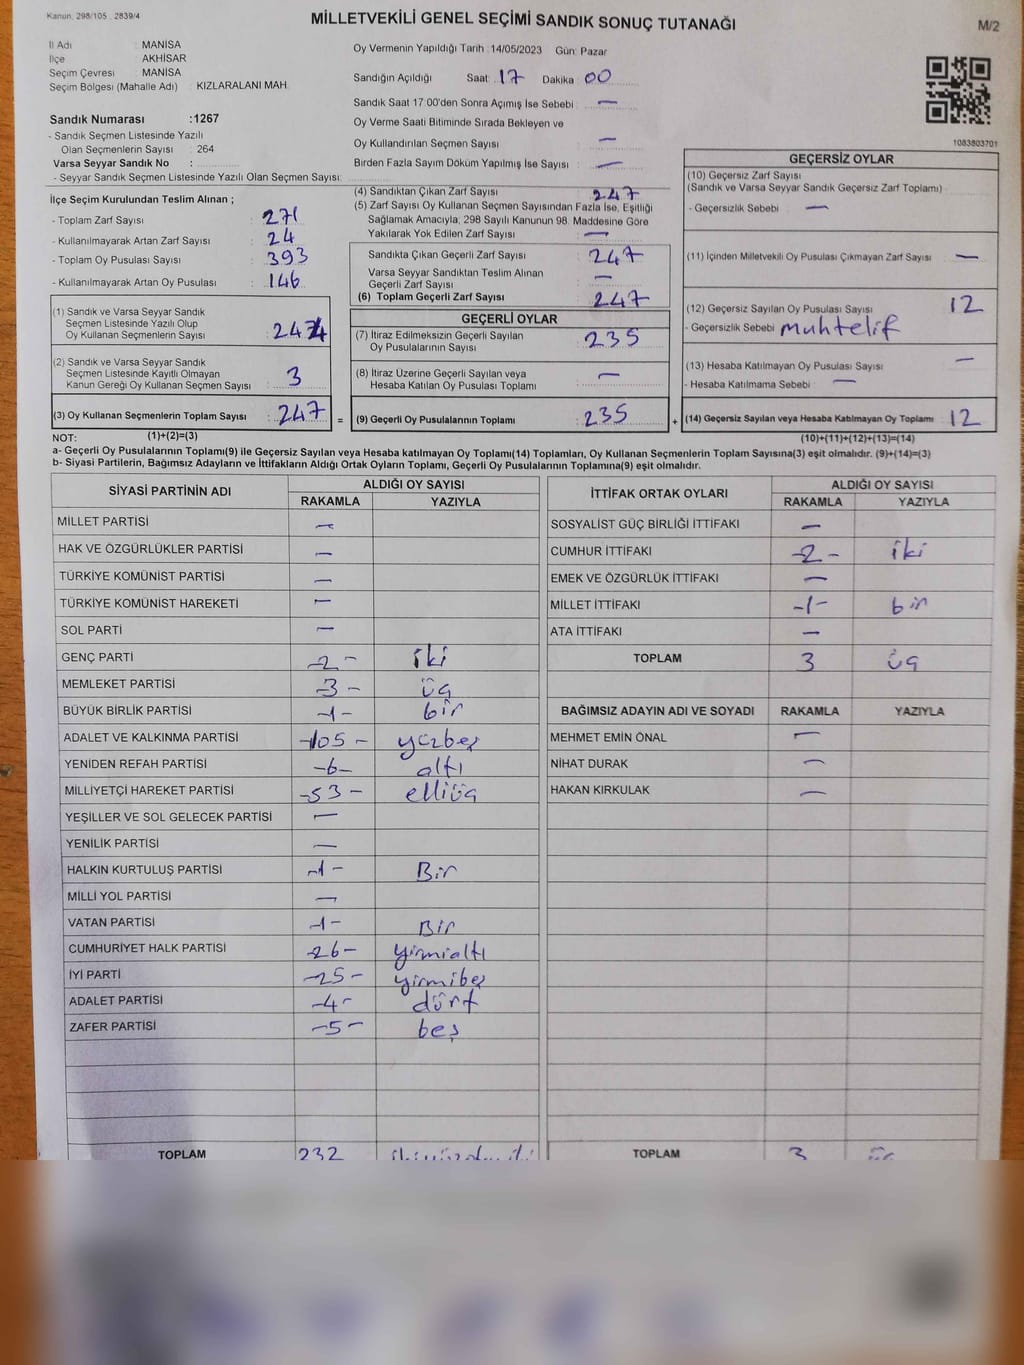 Kanun, 298/105 , 2839/4
MİLLETVEKİLİ GENEL SEÇİMİ SANDIK SONUÇ TUTANAĞI
M/2
İl Adı : MANİSA
İlçe AKHİSAR
Seçim Çevresi : MANİSA
Seçim Bölgesi (Mahalle Adı) : KIZLARALANI MAH.
Sandık Numarası :1267
- Sandık Seçmen Listesinde Yazılı
Olan Seçmenlerin Sayısı : 264
Varsa Seyyar Sandık No :
- Seyyar Sandık Seçmen Listesinde Yazılı Olan Seçmen Sayısı:
Oy Vermenin Yapıldığı Tarih :14/05/2023 Gün: Pazar
Sandığın Açıldığı Saat: 17 Dakika 00
Sandık Saat 17:00'den Sonra Açılmış İse Sebebi : —
Oy Verme Saati Bitiminde Sırada Bekleyen ve
Oy Kullandırılan Seçmen Sayısı : —
Birden Fazla Sayım Döküm Yapılmış İse Sayısı : —
1083803701
İlçe Seçim Kurulundan Teslim Alınan ;
- Toplam Zarf Sayısı : 271
- Kullanılmayarak Artan Zarf Sayısı : 24
- Toplam Oy Pusulası Sayısı : 393
- Kullanılmayarak Artan Oy Pusulası : 146
(1) Sandık ve Varsa Seyyar Sandık
Seçmen Listesinde Yazılı Olup
Oy Kullanan Seçmenlerin Sayısı :
(2) Sandık ve Varsa Seyyar Sandık
Seçmen Listesinde Kayıtlı Olmayan
Kanun Gereği Oy Kullanan Seçmen Sayısı : 3
(3) Oy Kullanan Seçmenlerin Toplam Sayısı : 247 =
(4) Sandıktan Çıkan Zarf Sayısı : 247
(5) Zarf Sayısı Oy Kullanan Seçmen Sayısından Fazla İse, Eşitliği
Sağlamak Amacıyla; 298 Sayılı Kanunun 98. Maddesine Göre
Yakılarak Yok Edilen Zarf Sayısı : —
Sandıkta Çıkan Geçerli Zarf Sayısı : 247
Varsa Seyyar Sandıktan Teslim Alınan
Geçerli Zarf Sayısı : —
(6) Toplam Geçerli Zarf Sayısı : 247
GEÇERLİ OYLAR
(7) İtiraz Edilmeksizin Geçerli Sayılan
Oy Pusulalarının Sayısı : 235
(8) İtiraz Üzerine Geçerli Sayılan veya
Hesaba Katılan Oy Pusulası Toplamı : —
(9) Geçerli Oy Pusulalarının Toplamı : 235 +
GEÇERSİZ OYLAR
(10) Geçersiz Zarf Sayısı
(Sandık ve Varsa Seyyar Sandık Geçersiz Zarf Toplamı) :
- Geçersizlik Sebebi : —
(11) İçinden Milletvekili Oy Pusulası Çıkmayan Zarf Sayısı : —
(12) Geçersiz Sayılan Oy Pusulası Sayısı : 12
- Geçersizlik Sebebi : muhtelif
(13) Hesaba Katılmayan Oy Pusulası Sayısı : —
- Hesaba Katılmama Sebebi : —
(14) Geçersiz Sayılan veya Hesaba Katılmayan Oy Toplamı : 12
NOT: (1)+(2)=(3) (10)+(11)+(12)+(13)=(14)
a- Geçerli Oy Pusulalarının Toplamı(9) ile Geçersiz Sayılan veya Hesaba katılmayan Oy Toplamı(14) Toplamları, Oy Kullanan Seçmenlerin Toplam Sayısına(3) eşit olmalıdır. (9)+(14)=(3)
b- Siyasi Partilerin, Bağımsız Adayların ve İttifakların Aldığı Ortak Oyların Toplamı, Geçerli Oy Pusulalarının Toplamına(9) eşit olmalıdır.
SİYASİ PARTİNİN ADI ALDIĞI OY SAYISI
RAKAMLA YAZIYLA
MİLLET PARTİSİ —
HAK VE ÖZGÜRLÜKLER PARTİSİ —
TÜRKİYE KOMÜNİST PARTİSİ —
TÜRKİYE KOMÜNİST HAREKETİ —
SOL PARTİ —
GENÇ PARTİ -2- iki
MEMLEKET PARTİSİ -3- üç
BÜYÜK BİRLİK PARTİSİ -1- bir
ADALET VE KALKINMA PARTİSİ -105- yüzbeş
YENİDEN REFAH PARTİSİ -6- altı
MİLLİYETÇİ HAREKET PARTİSİ -53- elliüç
YEŞİLLER VE SOL GELECEK PARTİSİ —
YENİLİK PARTİSİ —
HALKIN KURTULUŞ PARTİSİ -1- Bir
MİLLİ YOL PARTİSİ —
VATAN PARTİSİ -1- Bir
CUMHURİYET HALK PARTİSİ -26- yirmialtı
İYİ PARTİ -25- yirmibeş
ADALET PARTİSİ -4- dört
ZAFER PARTİSİ -5- beş
TOPLAM 232
İTTİFAK ORTAK OYLARI ALDIĞI OY SAYISI
RAKAMLA YAZIYLA
SOSYALİST GÜÇ BİRLİĞİ İTTİFAKI —
CUMHUR İTTİFAKI -2- iki
EMEK VE ÖZGÜRLÜK İTTİFAKI —
MİLLET İTTİFAKI -1- bir
ATA İTTİFAKI —
TOPLAM 3 üç
BAĞIMSIZ ADAYIN ADI VE SOYADI RAKAMLA YAZIYLA
MEHMET EMİN ÖNAL —
NİHAT DURAK —
HAKAN KIRKULAK —
TOPLAM 3 üç